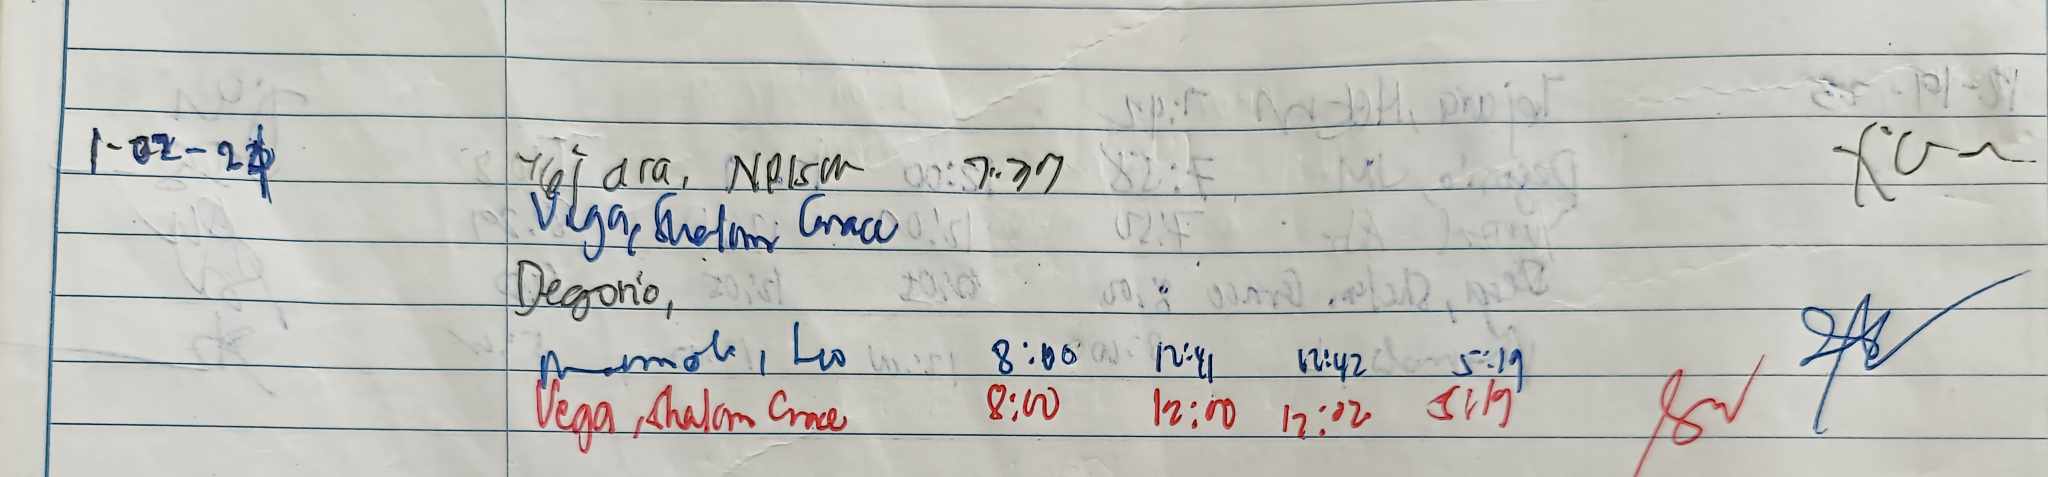 1-02-24 Tejara, Nelson 7:37
Vega, Shalom Grace
Degorio,
Leo 8:00 12:41 12:42 5:19
Vega, Shalom Grace 8:00 12:00 12:02 5:19